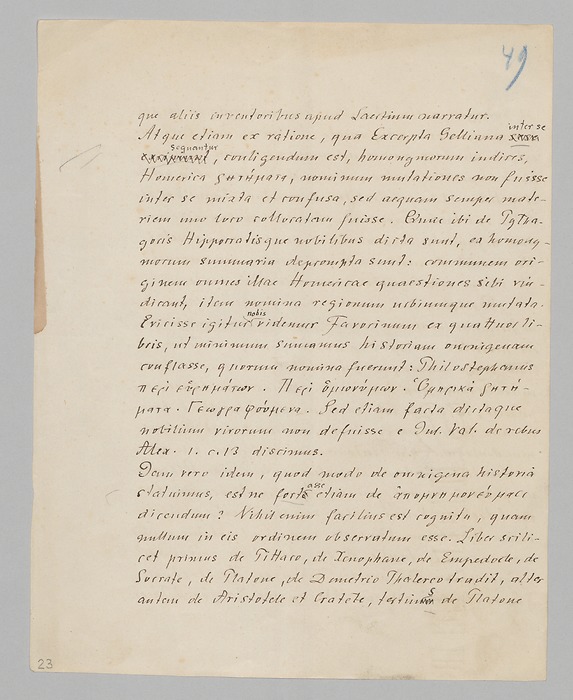 49
que aliis inventoribus apud Laertium narratur.
Atque etiam ex ratione, qua Excerpta Gelliana inter se
sequuntur, colligendum est, homonymorum indices,
Homerica ζητήματα, nominum mutationes non fuisse
inter se mixta et confusa, sed aequam semper mate-
riem uno loco collocatam fuisse. Quae ibi de Pytha-
goris Hippocratisque nobilibus dicta sunt, ex homony-
morum summario deprompta sunt: communem ori-
ginem omnes illae Homericae quaestiones sibi vin-
dicant, item nomina regionum urbiumque mutata.
Evicisse igitur nobis videmur Favorinum ex quattuor li-
bris, ut minimum sumamus historiam omnigenam
conflasse, quorum nomina fuerunt: Philostephanus
περὶ εὑρημάτων. Περὶ ὁμωνύμων. Ὁμηρικὰ ζητή-
ματα. Γεωγραφούμενα. Sed etiam facta dictaque
nobilium virorum non defuisse e Jul. Val. de rebus
Alex. 1. c. 13 discimus.
Idem vero idem, quod modo de omnigena historiâ
statuimus, estne forsasse etiam de ἀπομνημονεύμασι
dicendum? Nihil enim facilius est cognitu, quam
nullum in eis ordinem observatum esse. Liber scili-
cet primus de Pittaco, de Xenophane, de Empedocle, de
Socrate, de Platone, de Demetrio Phalereo tradit, alter
autem de Aristotele et Cratete, tertius de Platone
23